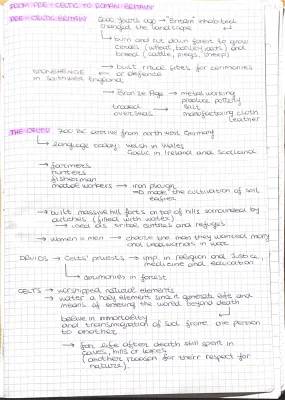 FROM PRE-CELTIC TO ROMAN BRITAIN
PRE-CELTIC BRITAIN
5000 years ago → Britain inhabited
changed the landscape
↳ burn and cut down forest to grow
cereals (wheat, barley, oats) and
breed (cattle, pigs, sheep)
→ built ritual sites for ceremonies
or defence
STONEHENGE ←
in Southwest England
→ Bronze Age → metalworking
produce pottery
salt
traded
overseas
manufacturing cloth
leather
THE CELTS 700 BC arrive from north west Germany
↳ language today: welsh in Wales
Gaelic in Ireland and Scotland
→ farmers
hunters
fisherman
metal workers → iron plough
↳ made the cultivation of soil
easier
→ built massive hill forts on top of hills surrounded by
ditches (filled with water)
↳ used as tribal centres and refuges
→ women = men → choose the man they wanted marry
and lead warriors in war
DRUIDS → Celts' priests → imp. in religion and justice,
medicine and education
↳ ceremonies in forest
CELTS → worshipped natural elements
→ water a holy element since it generates life and
means of entering the world beyond death
believe in immortality
and transmigration of soul from one person
to another
→ for life after death still spent in
caves, hills or lakes
(another reason for their respect for
nature).